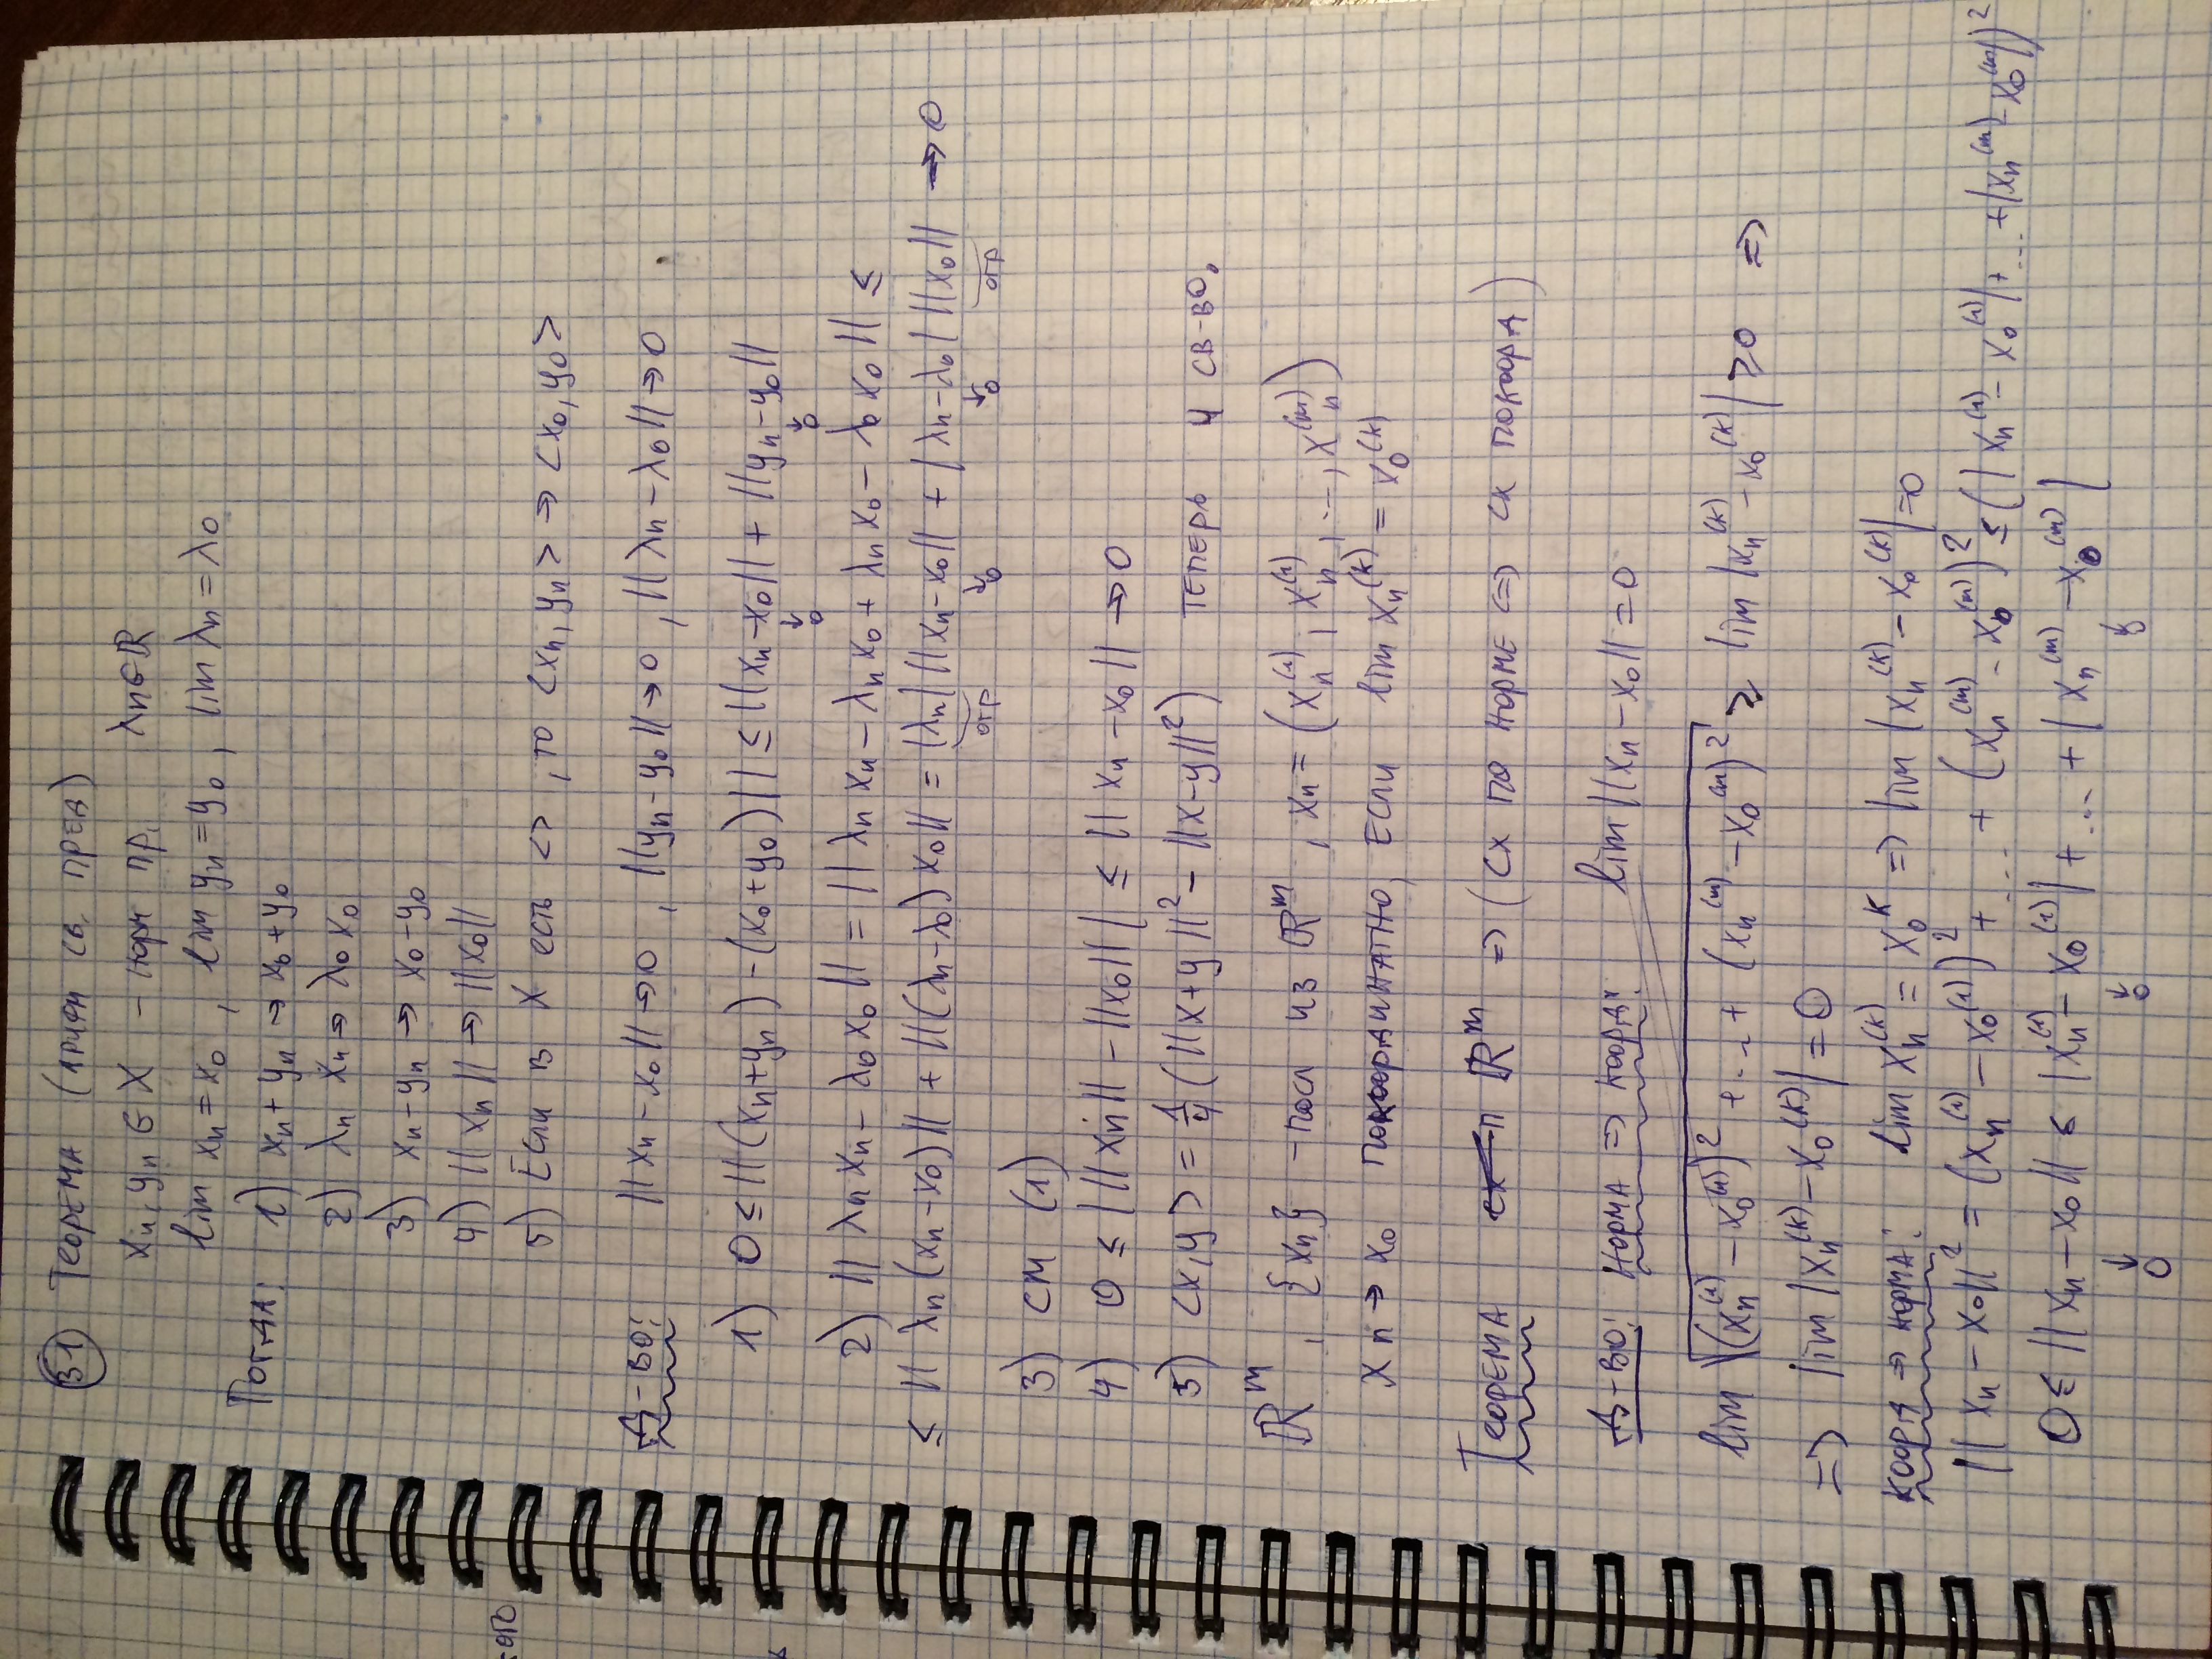 31 Теорема (Арифм св. пред)
xₙ, yₙ ∈ X – норм пр. λₙ∈ℝ
lim xₙ = x₀ , lim yₙ = y₀ , lim λₙ = λ₀
Тогда: 1) xₙ + yₙ → x₀ + y₀
2) λₙ xₙ → λ₀ x₀
3) xₙ – yₙ → x₀ – y₀
4) ||xₙ|| → ||x₀||
5) Если в X есть <> , то <xₙ, yₙ> → <x₀, y₀>
Д-во: ||xₙ – x₀|| → 0 , ||yₙ – y₀|| → 0 , ||λₙ – λ₀|| → 0
1) 0 ≤ ||(xₙ+yₙ) – (x₀+y₀)|| ≤ ||xₙ–x₀|| + ||yₙ–y₀||
↓0 ↓0
2) ||λₙ xₙ – λ₀ x₀|| = ||λₙ xₙ – λₙ x₀ + λₙ x₀ – λ₀ x₀|| ≤
≤ ||λₙ(xₙ–x₀)|| + ||(λₙ–λ₀) x₀|| = |λₙ| ||xₙ–x₀|| + |λₙ–λ₀| ||x₀|| → 0
огр ↓0 ↓0 огр
3) см (1)
4) 0 ≤ | ||xₙ|| – ||x₀|| | ≤ ||xₙ – x₀|| → 0
5) <x,y> = 1/4 (||x+y||² – ||x–y||²) теперь 4 св-во.
ℝᵐ , {xₙ} – посл из ℝᵐ , xₙ = (xₙ⁽¹⁾, xₙ⁽¹⁾, ..., xₙ⁽ᵐ⁾)
xₙ → x₀ покоординатно, если lim xₙ⁽ᵏ⁾ = x₀⁽ᵏ⁾
Теорема ℝᵐ ⇒ (сх по норме ⇔ сх покоорд)
Д-во: норма ⇒ коорд: lim ||xₙ – x₀|| = 0
lim √((xₙ⁽¹⁾ – x₀⁽¹⁾)² + ... + (xₙ⁽ᵐ⁾ – x₀⁽ᵐ⁾)²) ≥ lim |xₙ⁽ᵏ⁾ – x₀⁽ᵏ⁾| ≥ 0 ⇒
⇒ lim |xₙ⁽ᵏ⁾ – x₀⁽ᵏ⁾| = 0
коорд ⇒ норма: lim xₙ⁽ᵏ⁾ = x₀ᵏ ⇒ lim |xₙ⁽ᵏ⁾ – x₀⁽ᵏ⁾| = 0
||xₙ – x₀||² = (xₙ⁽¹⁾ – x₀⁽¹⁾)² + ... + (xₙ⁽ᵐ⁾ – x₀⁽ᵐ⁾)² ≤ (|xₙ⁽¹⁾ – x₀⁽¹⁾| + ... + |xₙ⁽ᵐ⁾ – x₀⁽ᵐ⁾|)²
0 ≤ ||xₙ – x₀|| ≤ |xₙ⁽¹⁾ – x₀⁽¹⁾| + ... + |xₙ⁽ᵐ⁾ – x₀⁽ᵐ⁾|
↓0 ↓0 ↓0